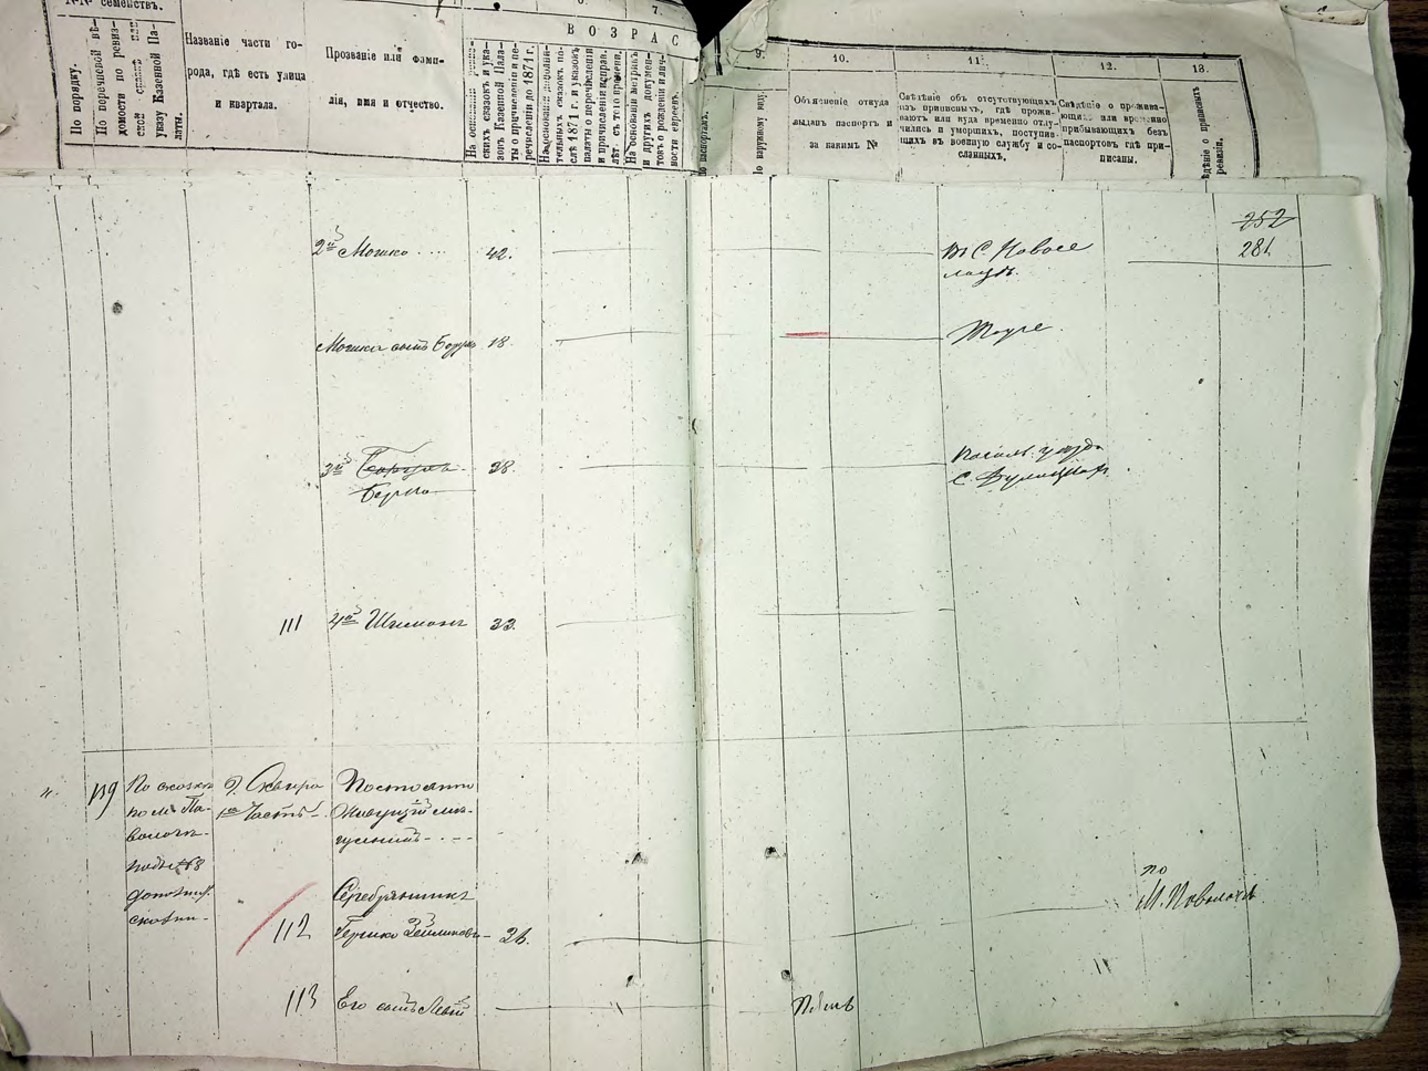 №№ семействъ.
6.
7.
По порядку.
По перечневой вѣ-
домости по ревиз-
ской сказкѣ или
указу Казенной Па-
латы.
Названіе части го-
рода, гдѣ есть улица
и квартала.
Прозваніе или фами-
лія, имя и отчество.
ВОЗРАС
На основаніи ревиз-
скихъ сказокъ и ука-
зовъ Казенной Пала-
ты о причисленіи и пе-
речисленіи до 1871 г.
На основаніи дополни-
тельныхъ сказокъ по-
слѣ 1871 г. и указовъ
палаты о перечисленіи
и причисленіи исправ.
лѣтъ съ того времени.
На основаніи метрикъ
и другихъ докумен-
товъ о рожденіи и лич-
ности евреевъ.
по паспортамъ.
9.
По наружному виду.
10.
Объясненіе откуда
выданъ паспортъ и
за какимъ №
11.
Свѣдѣніе объ отсутствующихъ
изъ приписныхъ, гдѣ прожи-
ваютъ или куда временно отлу-
чились и умершихъ, поступив-
шихъ въ военную службу и со-
сланныхъ.
12.
Свѣдѣніе о прожива-
ющихъ или временно
прибывающихъ безъ
паспортовъ гдѣ при-
писаны.
13.
ѣдѣніе о приписныхъ
ревизіи.
252
281
2й Мошко 42.
Въ С. Новосе
лицѣ.
Мошка сынъ 18.
Тоуже.
3й 38.
Берко
С.
111 4й Шимонъ 33.
119 По сказкѣ г. Сквира Постоянно
по м. Па- 1я Часть Живущій
волочь-
подъ № 68
дополнит. Серебрянникъ
сказки-
112 Гершко Зейликовъ- 26.
по
М. Поволочь
113 Его сынъ Левій